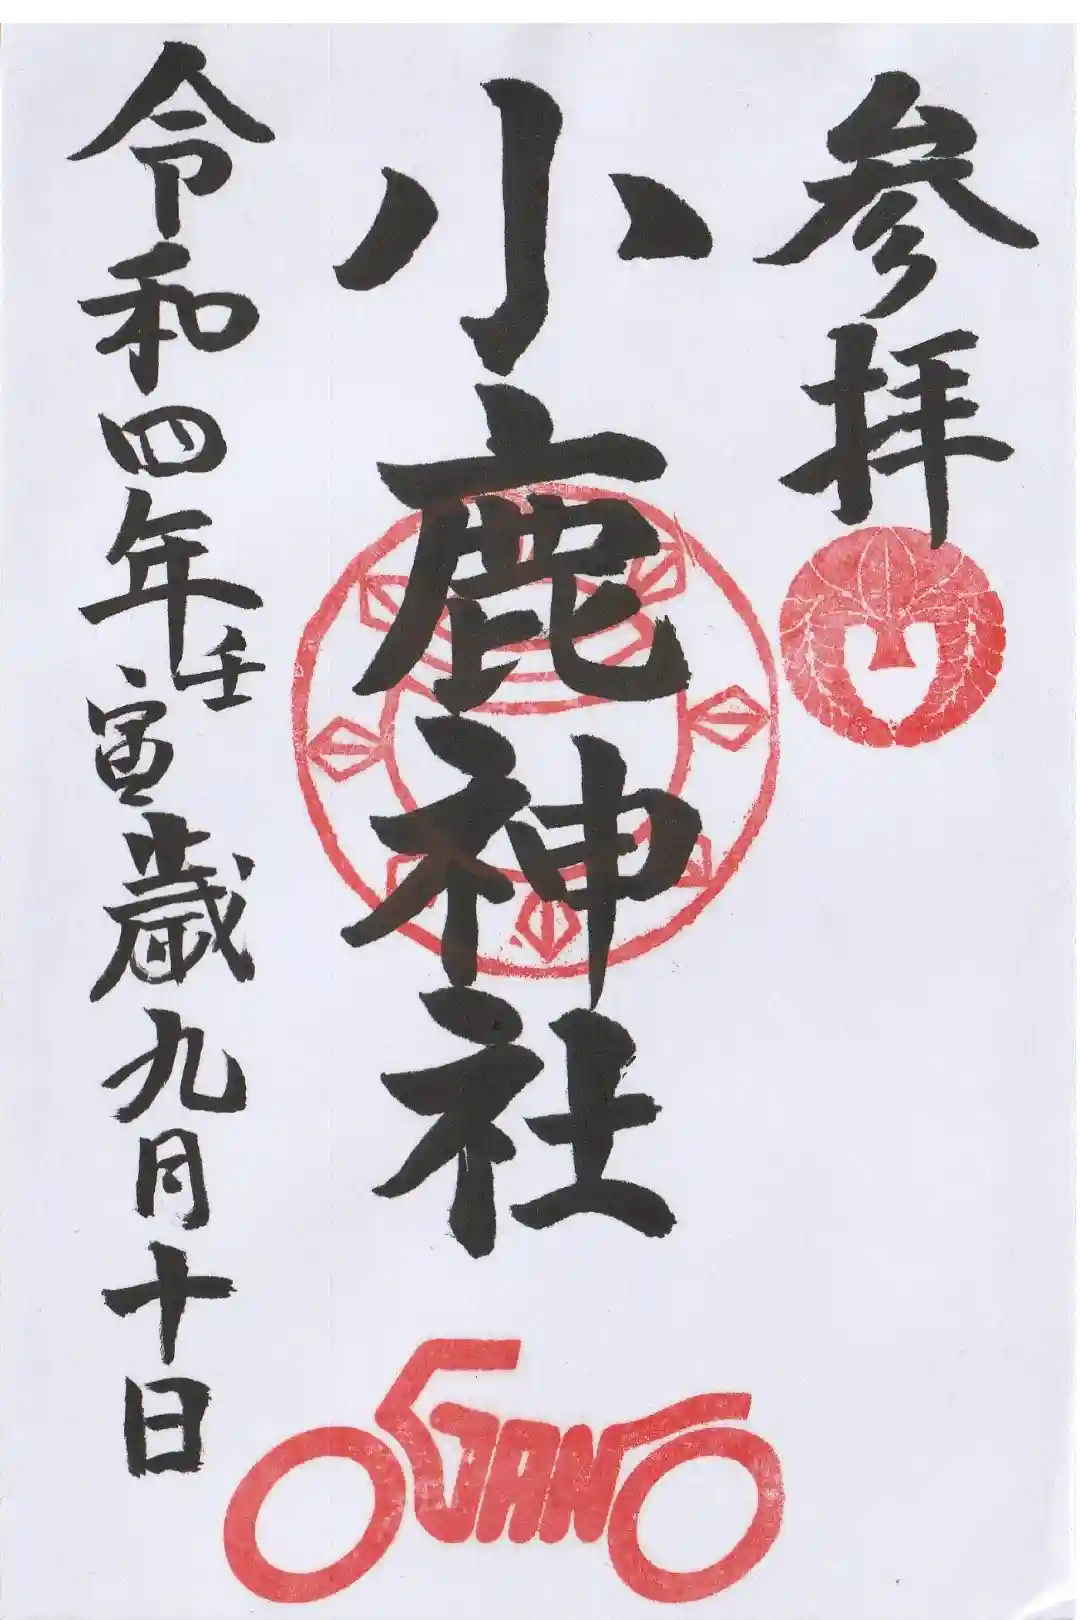 参拝
小鹿神社
令和四年壬寅歳九月十日